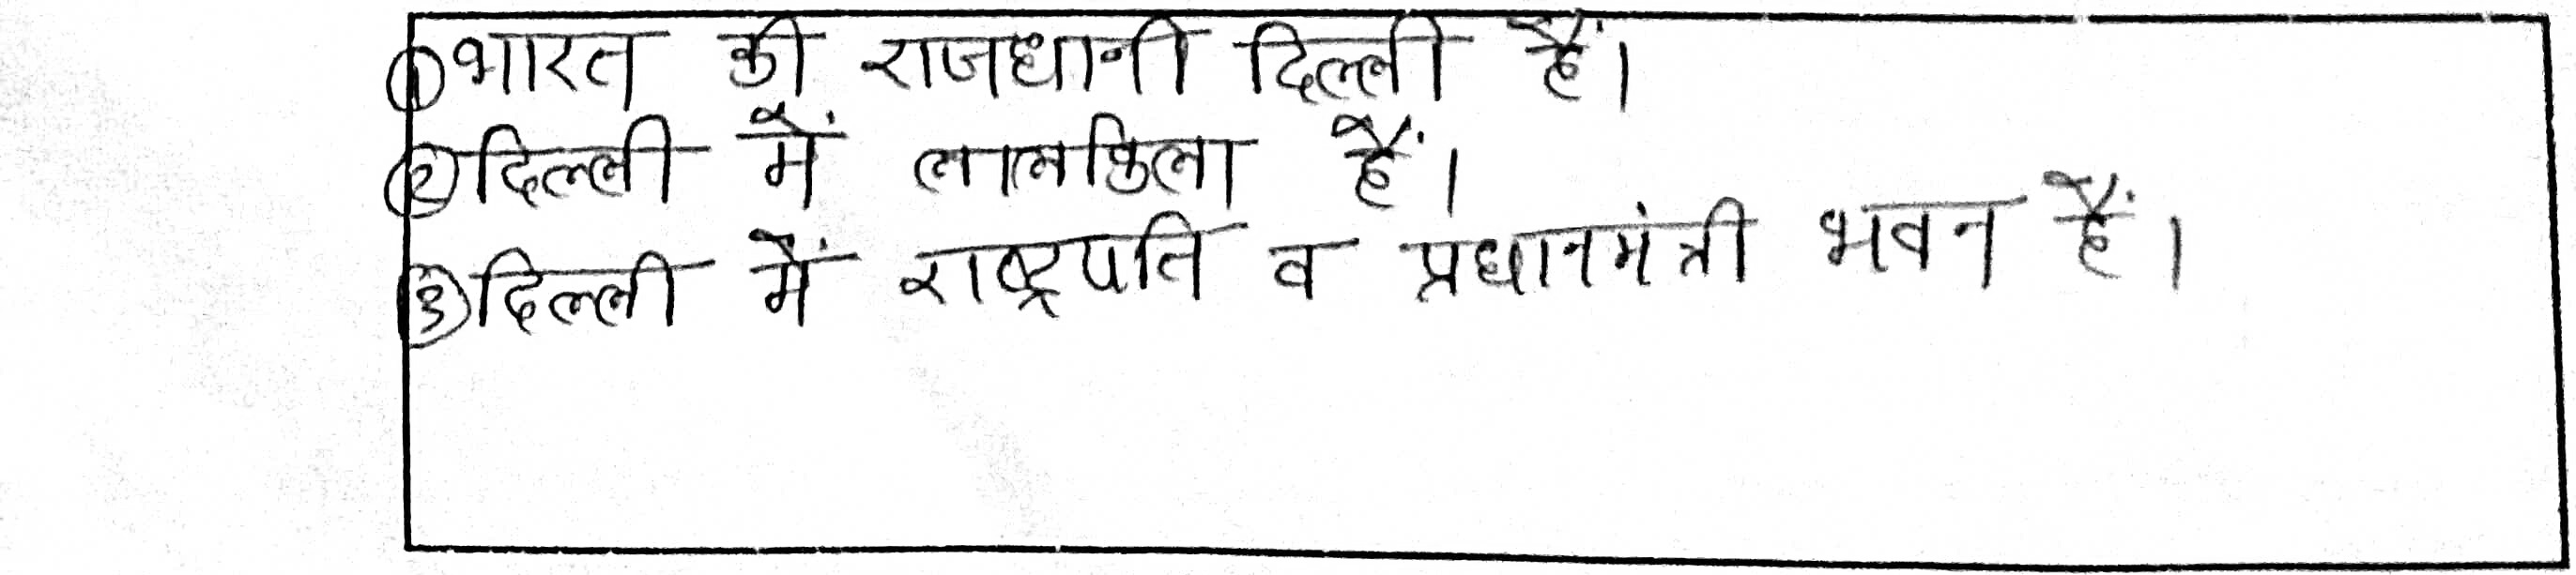 ① भारत की राजधानी दिल्ली हैं।
② दिल्ली में लालकिला हैं।
③ दिल्ली में राष्ट्रपति व प्रधानमंत्री भवन हैं।